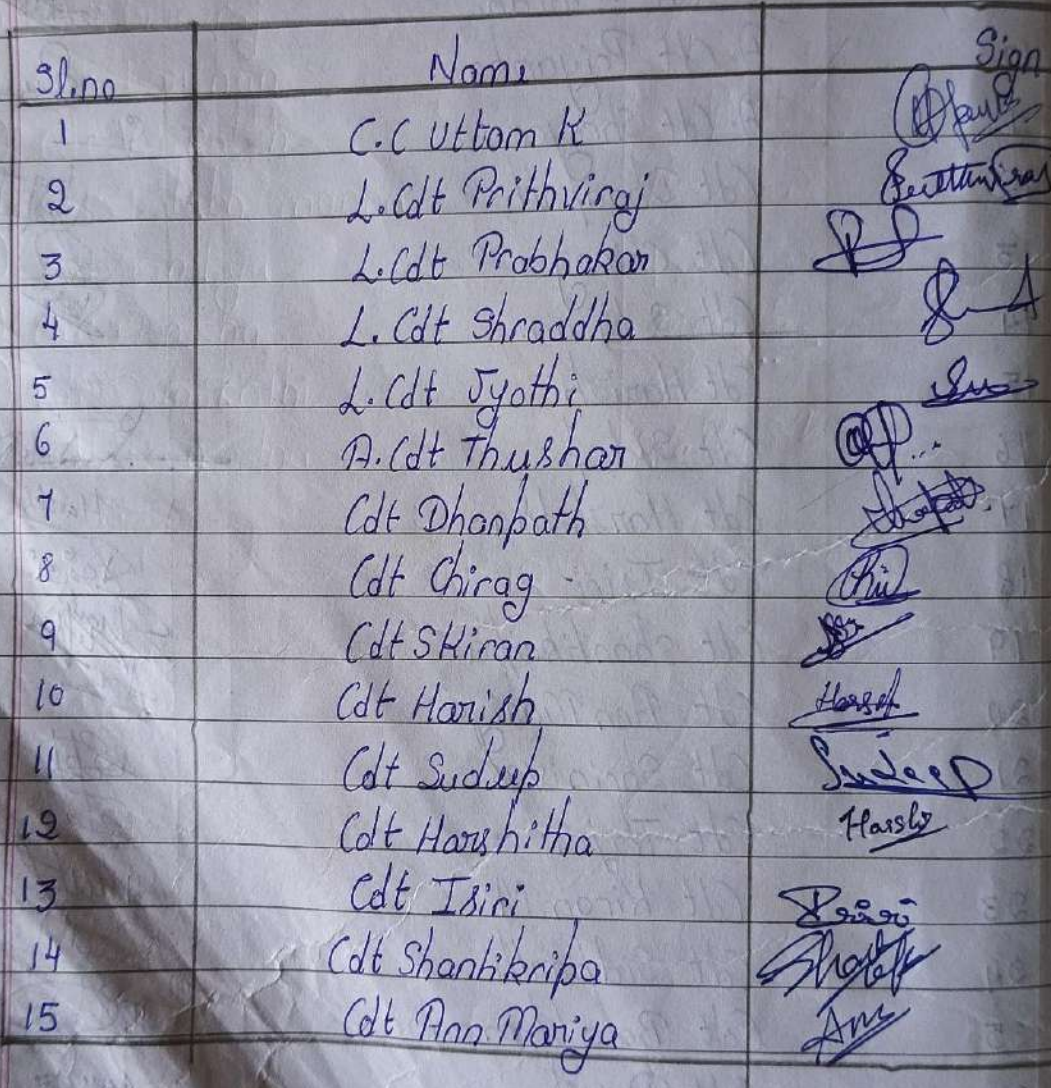 Sl.no Name Sign
1 C.C Uttam K
2 L.Cdt Prithviraj
3 L.Cdt Prabhakar
4 L. Cdt Shraddha
5 L.Cdt Jyothi
6 A.Cdt Thushar
7 Cdt Dhanpath
8 Cdt Chirag
9 Cdt SKiran
10 Cdt Harish
11 Cdt Sudeep Sudeep
12 Cdt Harshitha
13 Cdt Isiri
14 Cdt Shantikripa
15 Cdt Ann Mariya